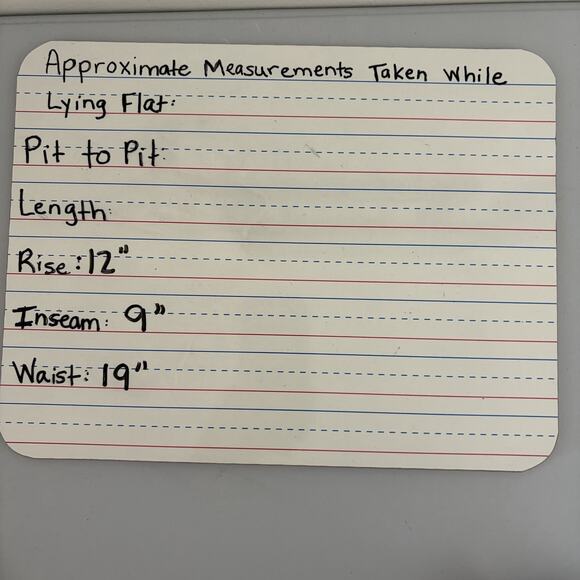 Approximate Measurements Taken While
Lying Flat:
Pit to Pit:
Length:
Rise: 12"
Inseam: 9"
Waist: 19"